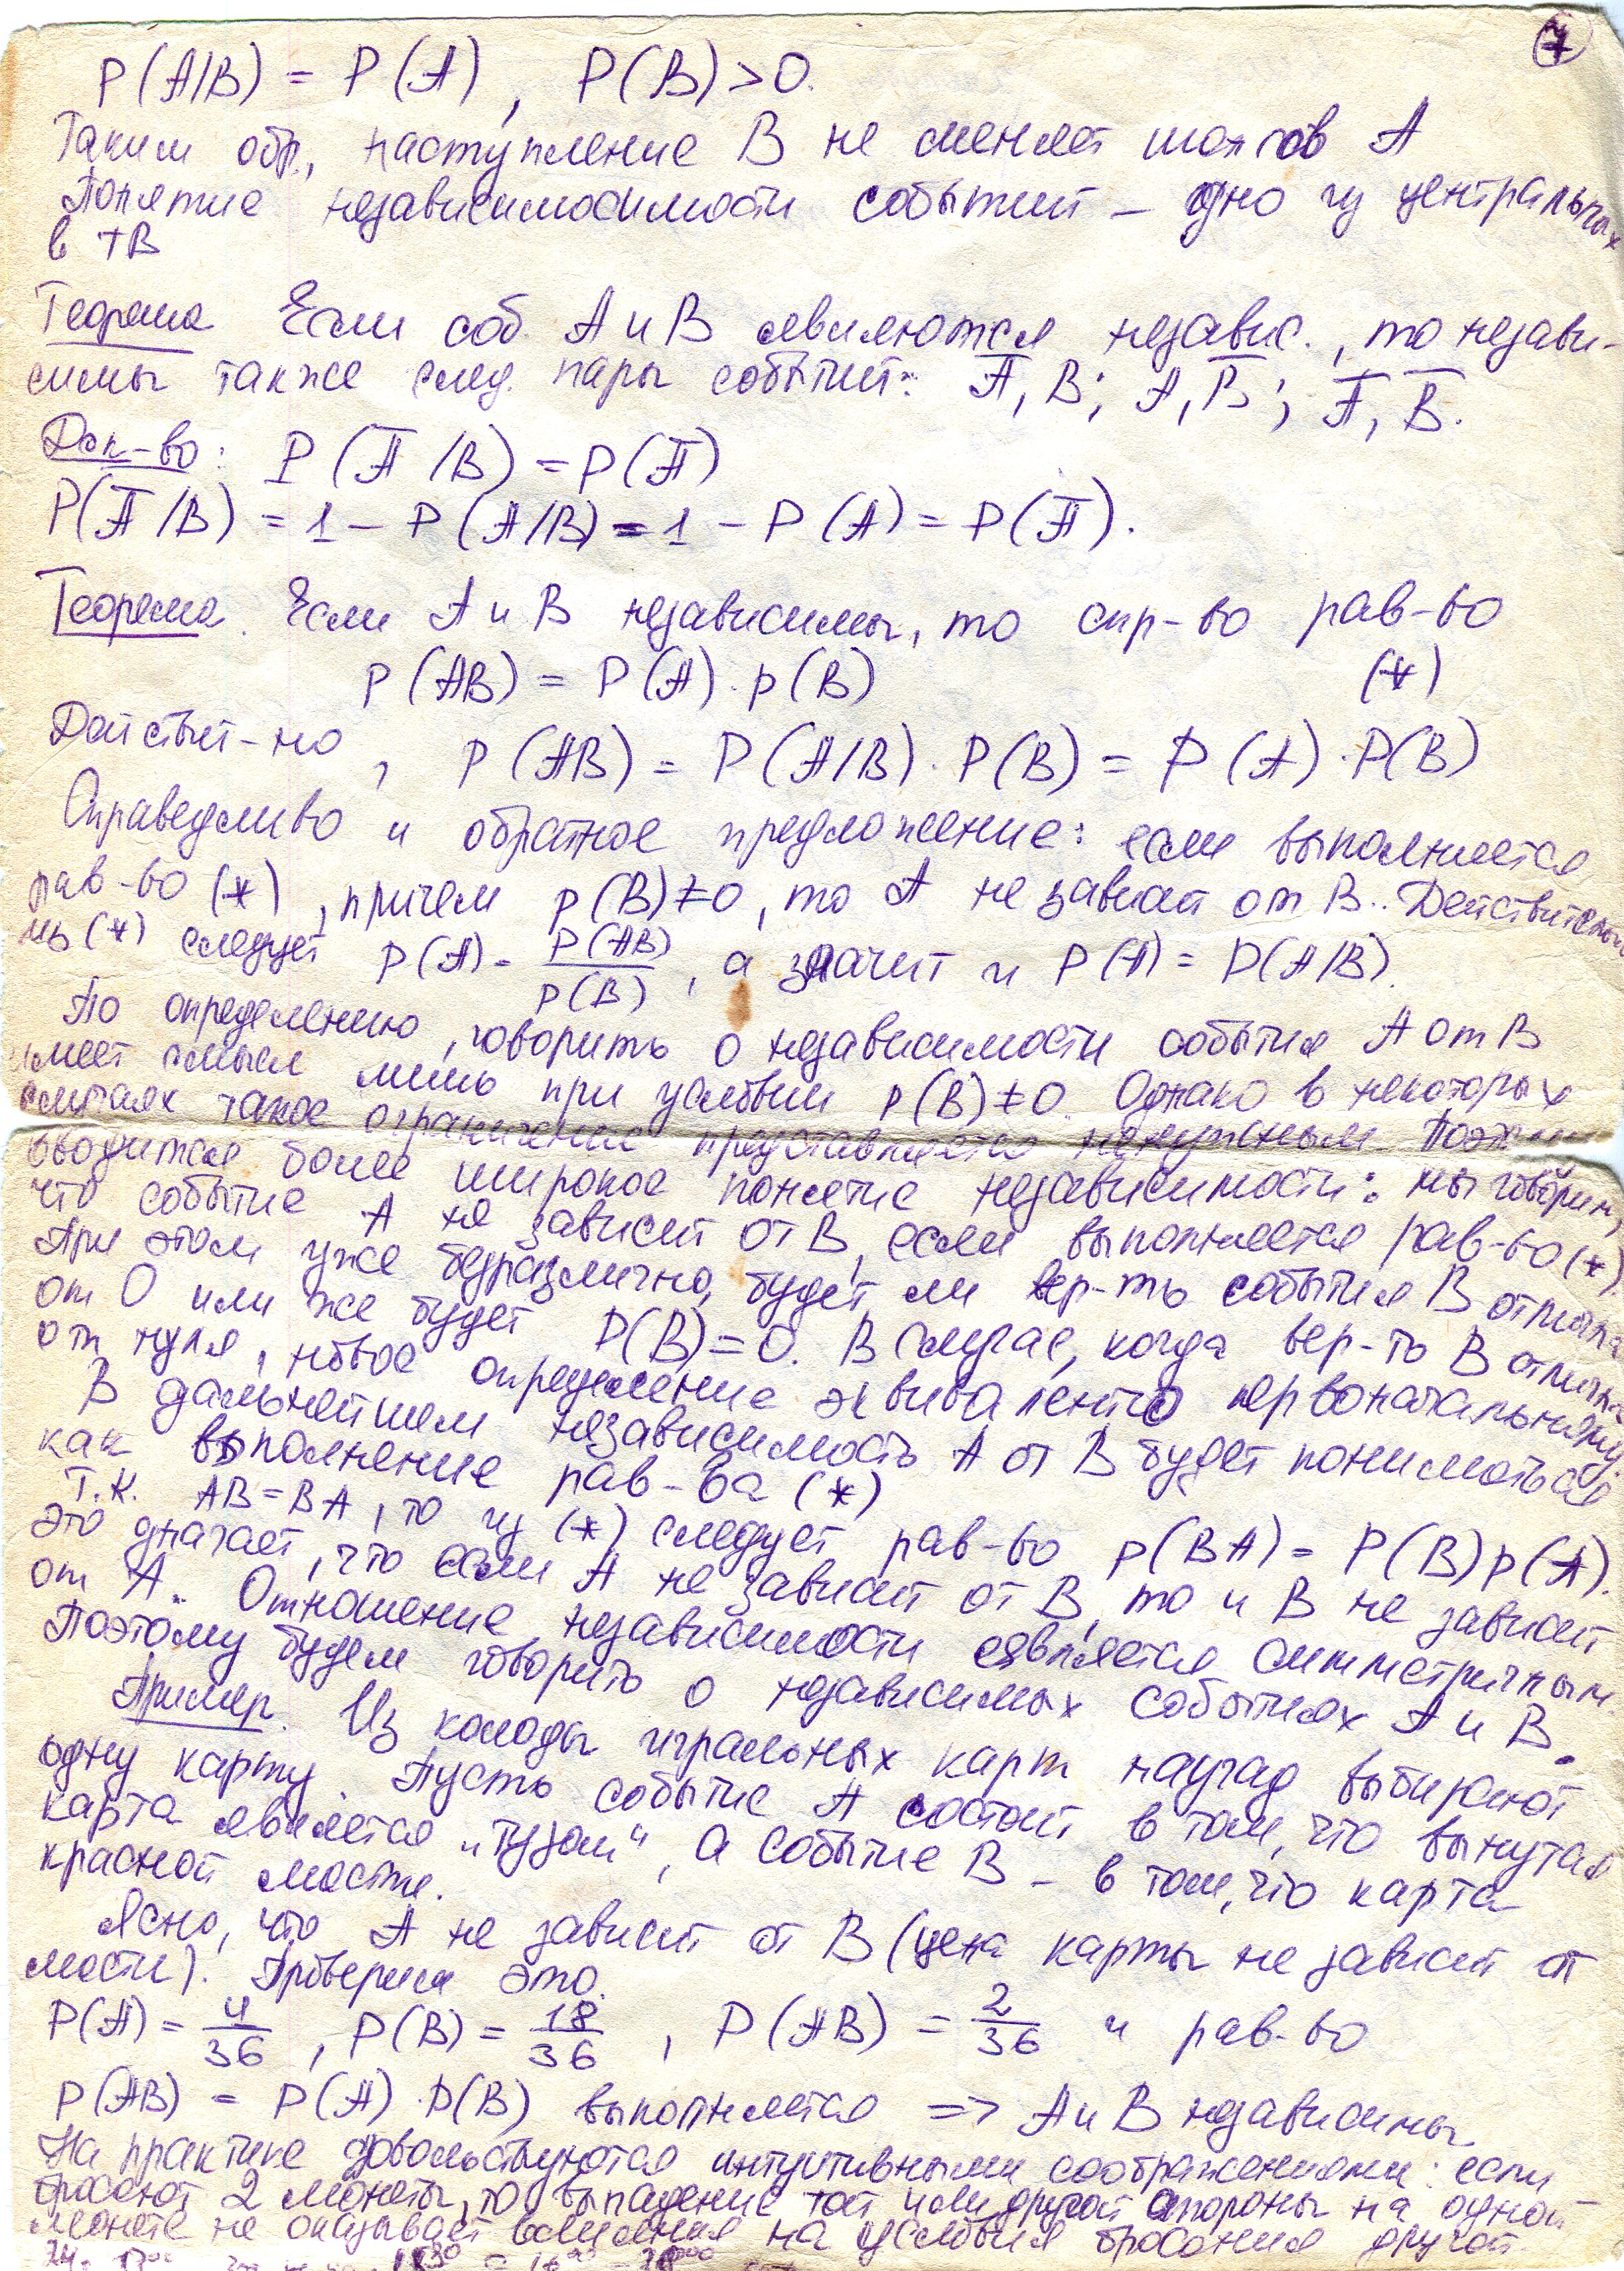 7
P(A/B) = P(A), P(B) > 0.
Таким обр., наступление B не меняет шансов A
Понятие независимосимости событий – одно из центральных
в ТВ
Теорема Если соб. A и B являются независ., то незави-
симы также след. пары событий: A̅, B; A, B̅; A̅, B̅.
Док-во: P(A̅/B) = P(A̅)
P(A̅/B) = 1 – P(A/B) = 1 – P(A) = P(A̅).
Теорема. Если A и B независимы, то спр-во рав-во
P(AB) = P(A)·P(B) (*)
Действит-но, P(AB) = P(A/B)·P(B) = P(A)·P(B)
Справедливо и обратное предложение: если выполняется
рав-во (*), причем P(B)≠0, то A не зависит от B. Действительно
из (*) следует P(A) = P(AB)/P(B), а значит и P(A) = P(A/B).
По определению, говорить о независимости события A от B
имеет смысл лишь при условии P(B)≠0. Однако в некоторых
случаях такое ограничение представляется ненужным. Поэтому
вводится более широкое понятие независимости: мы говорим,
что событие A не зависит от B, если выполняется рав-во (*).
При этом уже безразлично, будет ли вер-ть события B отлична
от 0 или же будет P(B)=0. В случае, когда вер-ть B отлична
от нуля, новое определение эквивалентно первоначальному
В дальнейшем независимость A от B будет пониматься
как выполнение рав-ва (*)
Т.к. AB = BA, то из (*) следует рав-во P(BA) = P(B)P(A).
Это значает, что если A не зависит от B, то и B не зависит
от A. Отношение независимости является симметричным.
Поэтому будем говорить о независимых событиях A и B.
Пример. Из колоды игральных карт наугад выбирают
одну карту. Пусть событие A состоит в том, что вынутая
карта является „тузом“, а событие B – в том, что карта
красной масти.
Ясно, что A не зависит от B (цена карты не зависит от
масти). Проверим это.
P(A) = 4/36, P(B) = 18/36, P(AB) = 2/36 и рав-во
P(AB) = P(A)·P(B) выполняется => A и B независимы
На практике довольствуются интуитивными соображениями: если
бросают 2 монеты, то выпадение той или другой стороны на одной
монете не оказывает влияния на условия бросания другой.